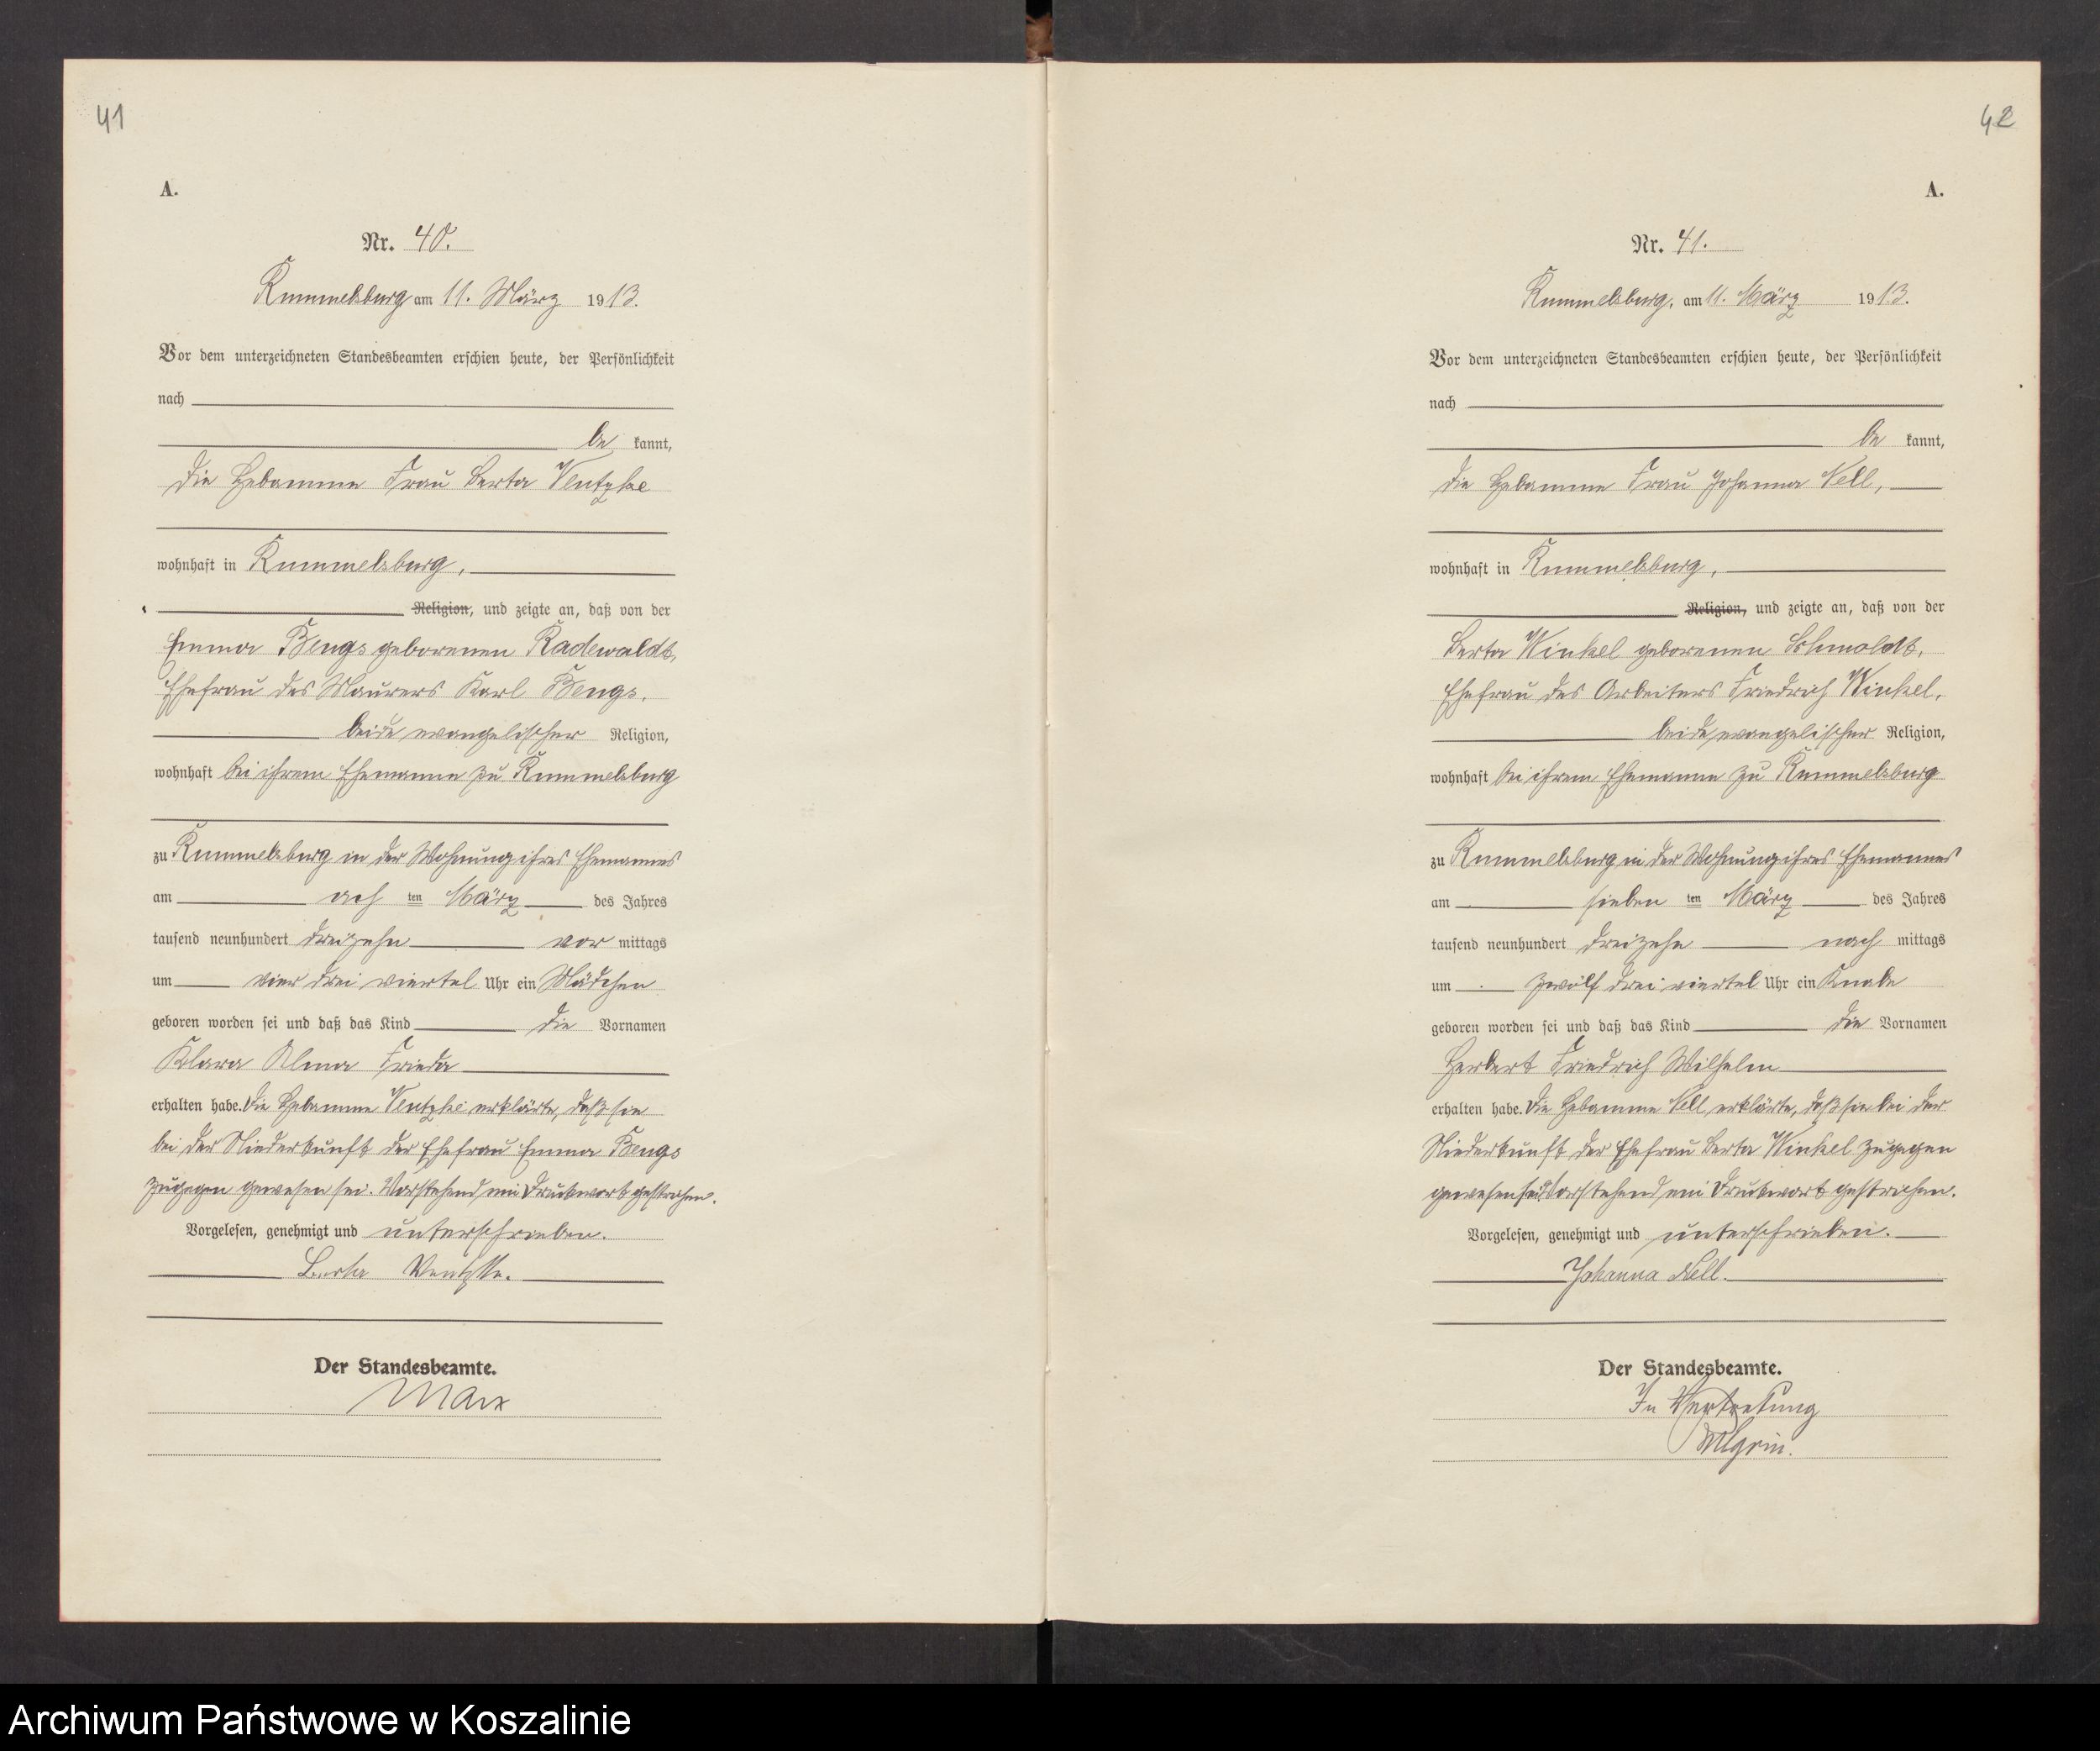 41
A.
Nr. 40.
Rummelsburg am 11. März 1913.
Vor dem unterzeichneten Standesbeamten erschien heute, der Persönlichkeit
nach
be kannt,
die Hebamme Frau Berta Ventzke
wohnhaft in Rummelsburg,
Religion, und zeigte an, daß von der
Emma Bengs geborenen Radewaldt,
Ehefrau des Maurers Karl Bengs,
beide evangelischer Religion,
wohnhaft bei ihrem Ehemanne zu Rummelsburg
zu Rummelsburg in der Wohnung ihres Ehemannes
am ach ten März des Jahres
tausend neunhundert dreizehn vor mittags
um vier drei viertel Uhr ein Mädchen
geboren worden sei und daß das Kind die Vornamen
Klara Alma Frieda
erhalten habe. Die Hebamme Ventzke erklärte, daß sie
bei der Niederkunft der Ehefrau Emma Bengs
zugegen gewesen sei. Vorstehend ein Druckwort gestrichen.
Vorgelesen, genehmigt und unterschrieben.
Berta Ventzke.
Der Standesbeamte.
Marx
42
A.
Nr. 41.
Rummelsburg, am 11. März 1913.
Vor dem unterzeichneten Standesbeamten erschien heute, der Persönlichkeit
nach
be kannt,
die Hebamme Frau Johanna Nell,
wohnhaft in Rummelsburg,
Religion, und zeigte an, daß von der
Berta Winkel geborenen Schmoldt,
Ehefrau des Arbeiters Friedrich Winkel,
beide evangelischer Religion,
wohnhaft bei ihrem Ehemanne zu Rummelsburg
zu Rummelsburg in der Wohnung ihres Ehemannes
am sieben ten März des Jahres
tausend neunhundert dreizehn nach mittags
um zwölf drei viertel Uhr ein Knabe
geboren worden sei und daß das Kind die Vornamen
Herbert Friedrich Wilhelm
erhalten habe. Die Hebamme Nell erklärte, daß sie bei der
Niederkunft der Ehefrau Berta Winkel zugegen
gewesen sei. Vorstehend ein Druckwort gestrichen.
Vorgelesen, genehmigt und unterschrieben.
Johanna Nell.
Der Standesbeamte.
In Vertretung
Archiwum Państwowe w Koszalinie